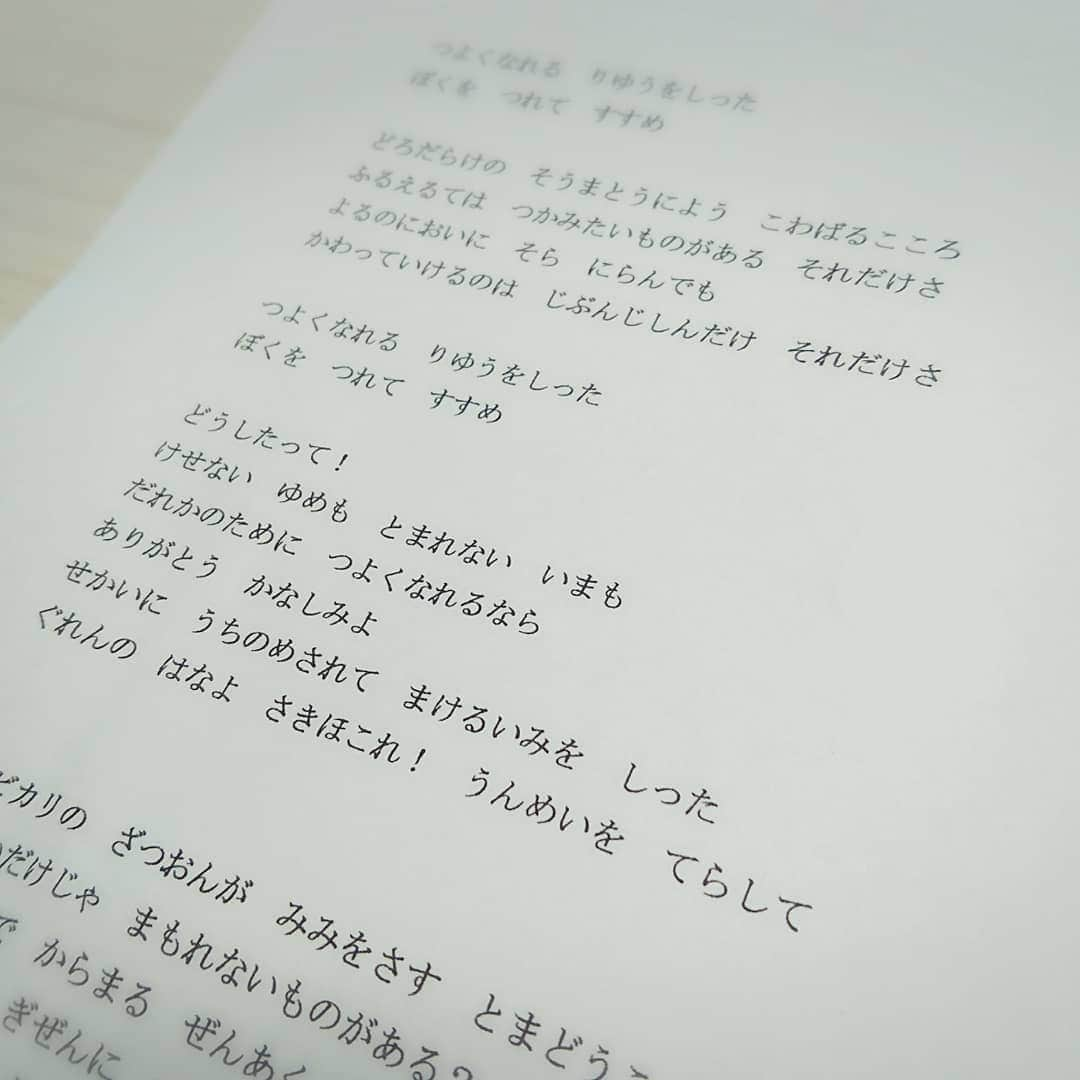 つよくなれる　りゆうをしった
ぼくを　つれて　すすめ
どろだらけの　そうまとうによう　こわばるこころ
ふるえるては　つかみたいものがある　それだけさ
よるのにおいに　そら　にらんでも
かわっていけるのは　じぶんじしんだけ　それだけさ
つよくなれる　りゆうをしった
ぼくを　つれて　すすめ
どうしたって！
けせない　ゆめも　とまれない　いまも
だれかのために　つよくなれるなら
ありがとう　かなしみよ
せかいに　うちのめされて　まけるいみを　しった
ぐれんの　はなよ　さきほこれ！　うんめいを　てらして
ビカリの　ざつおんが　みみをさす　とまどう
だけじゃ　まもれないものがある？
で　からまる　ぜんあく
ぎぜんに